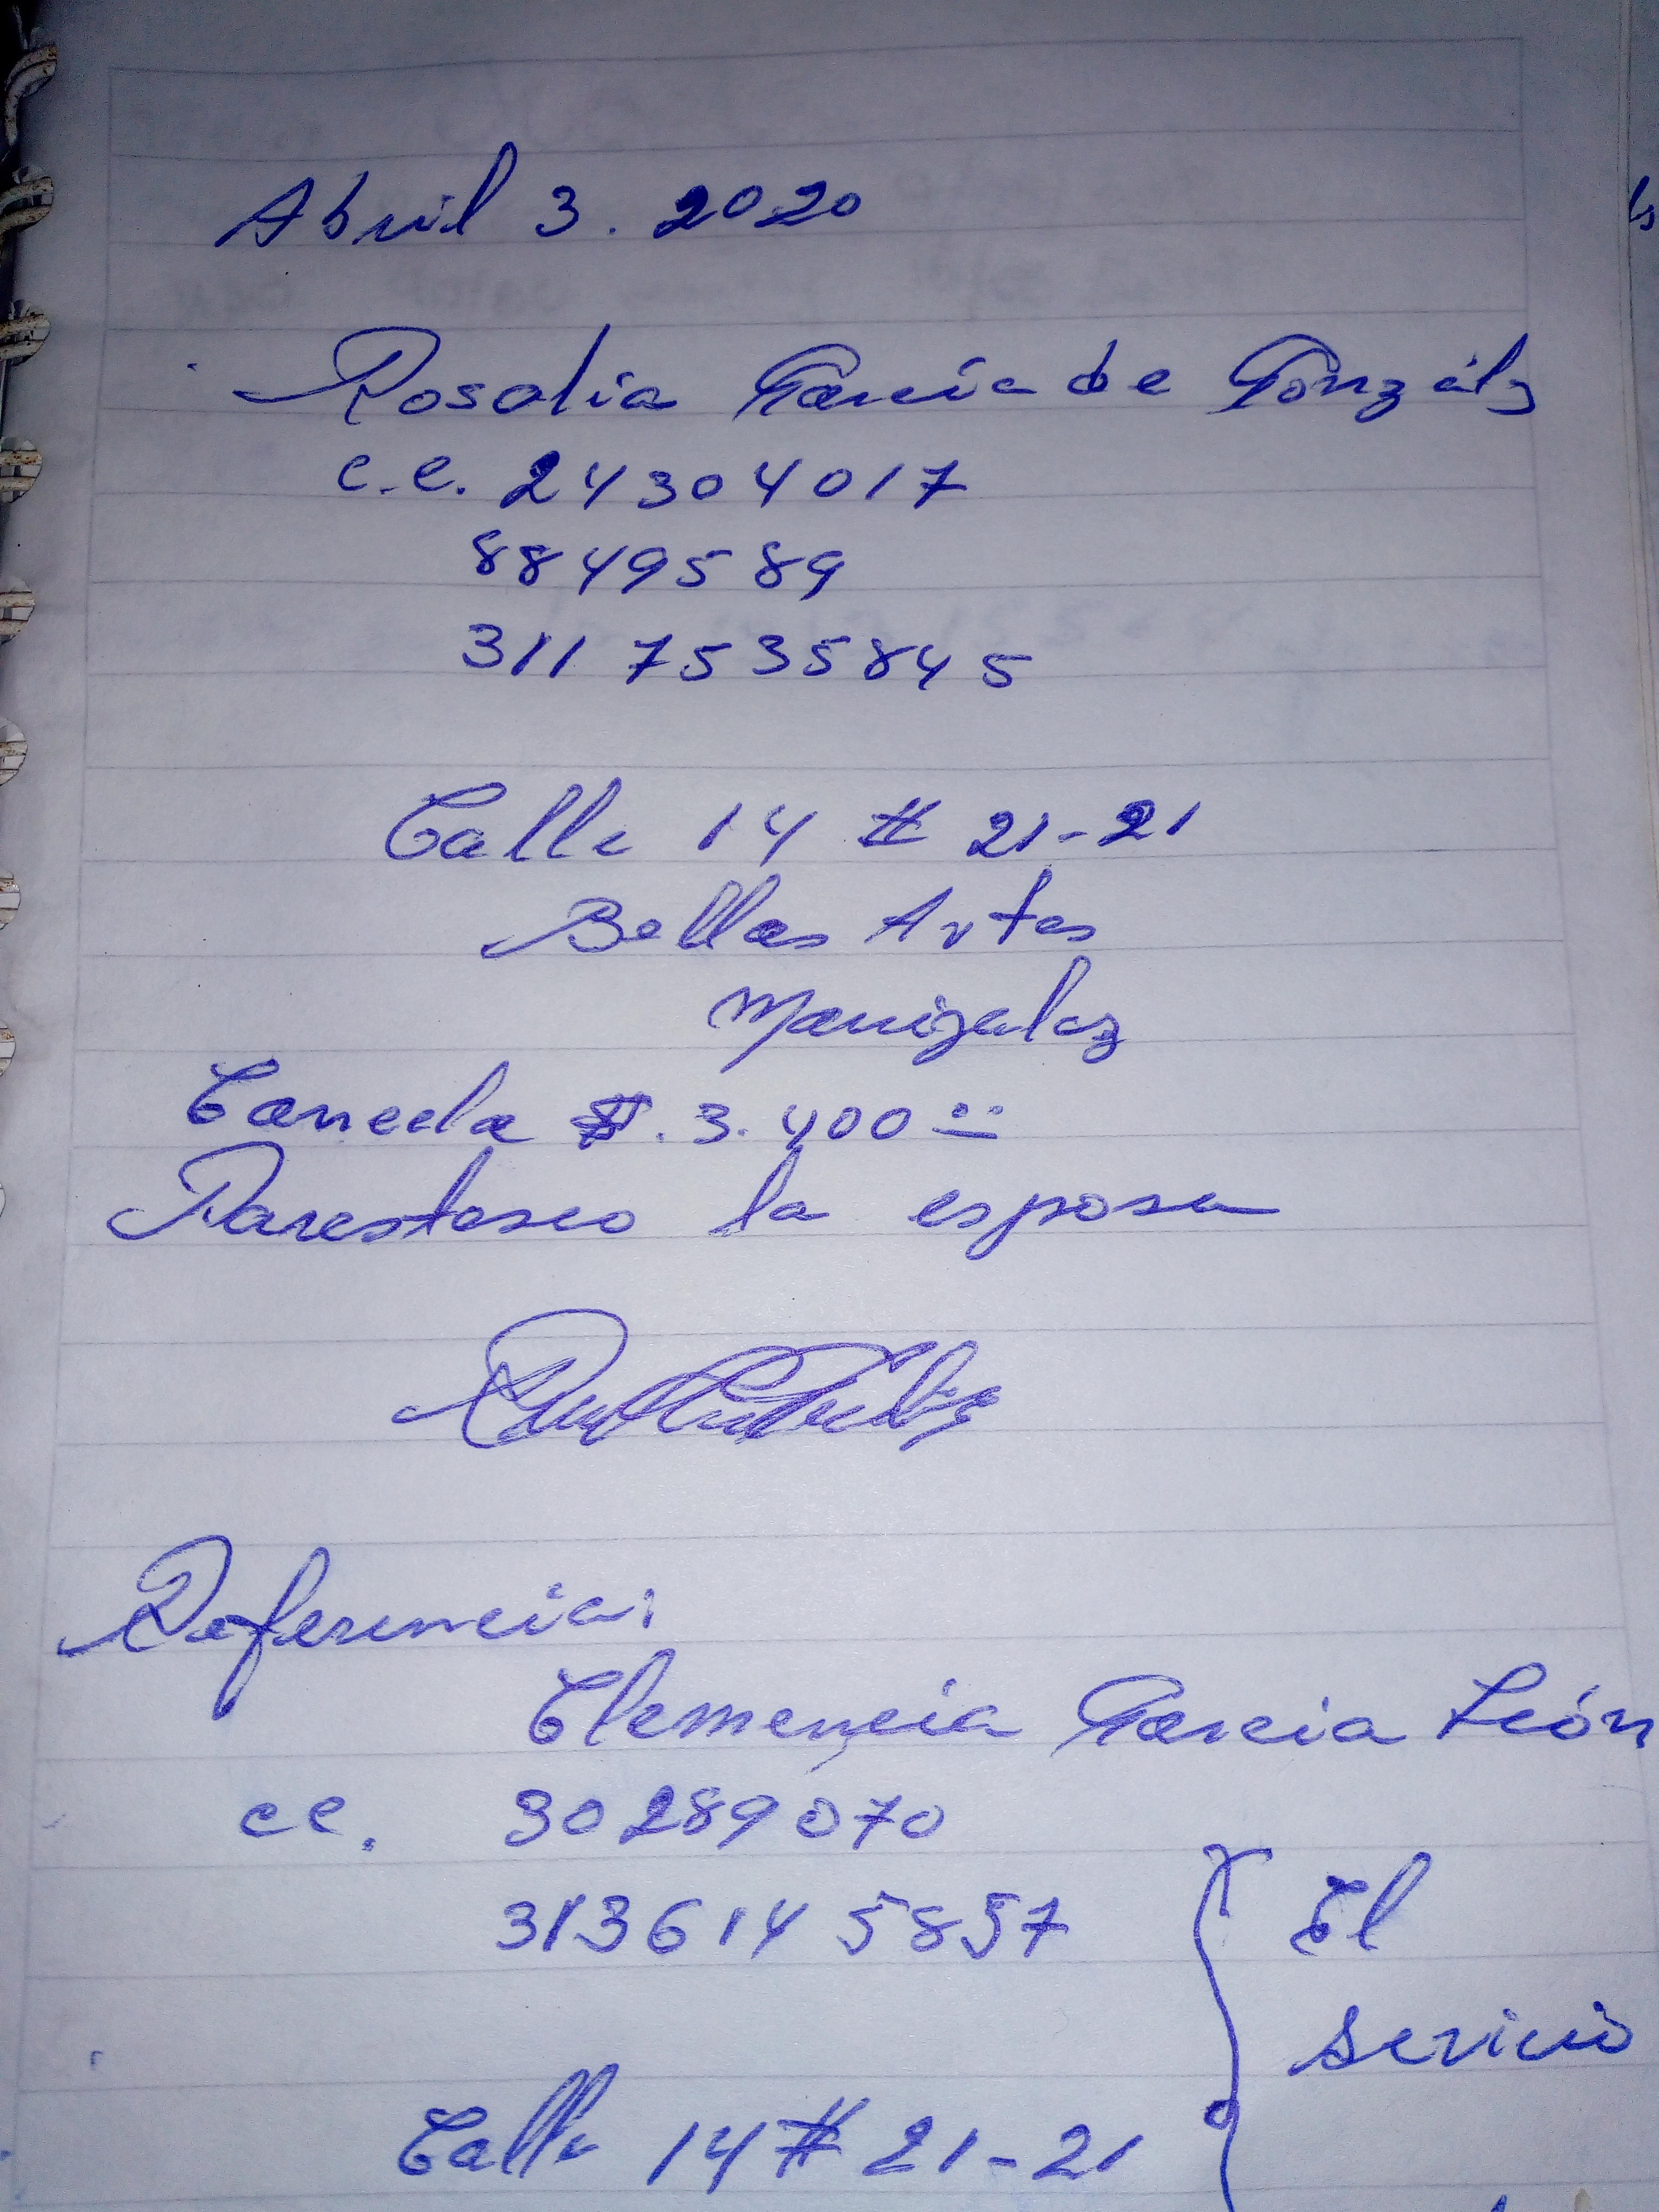 Abril 3. 2020
Rosalia García de Gonzálz
c.c. 24304017
8849589
311 7535845
Calle 14 # 21-21
Bellas Artes
Manizalez
Caneela $. 3.400=
Parestosco la esposa
Referencia:
Clemencia Garcia León
cc. 30289070
313614 5857
El
servicio
Calle 14 # 21-21